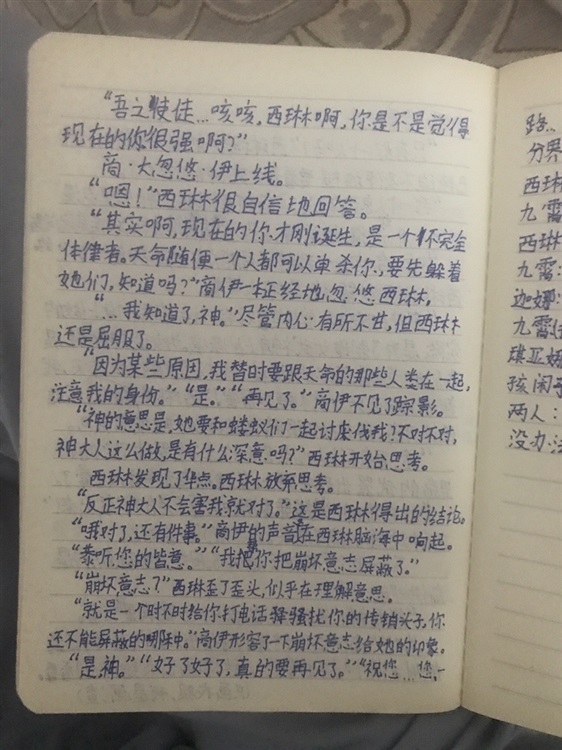 “吾之使徒…咳咳,西琳啊,你是不是觉得
现在的你很强啊?”
商·大忽悠·伊上线。
“嗯!”西琳很自信地回答。
“其实啊,现在的你才刚诞生,是一个不完全
体律者。天命随便一个人都可以单杀你,要先躲着
她们,知道吗?”商伊一本正经地忽悠西琳,
“…我知道了,神。”尽管内心有所不甘,但西琳
还是屈服了。
“因为某些原因,我暂时要跟天命的那些人类在一起,
注意我的身份。”“是。”“再见了。”商伊不见了踪影。
“神的意思是,她要和蝼蚁们一起讨虐伐我?不对不对,
神大人这么做,是有什么深意吗?”西琳开始思考。
西琳发现了华点。西琳放弃思考。
“反正神大人不会害我就对了。”这是西琳得出的结论。
“哦对了,还有件事。”商伊的声音在西琳脑海中响起。
“黍听您的旨意。”“我把你把崩坏意志屏蔽了。”
“崩坏意志?”西琳歪了歪头,似乎在理解意思.
“就是一个时不时给你打电话骚扰你的传销头子,你
还不能屏蔽的那种。”商伊形容了一下崩坏意志给她的印象。
“是,神。”“好了好了,真的要再见了。”“祝您…您,一
路…
分界
西琳
九霄
西琳
九霄:
迦娜:
九霄
琪亚娜
孩闹子
两人:
没办法